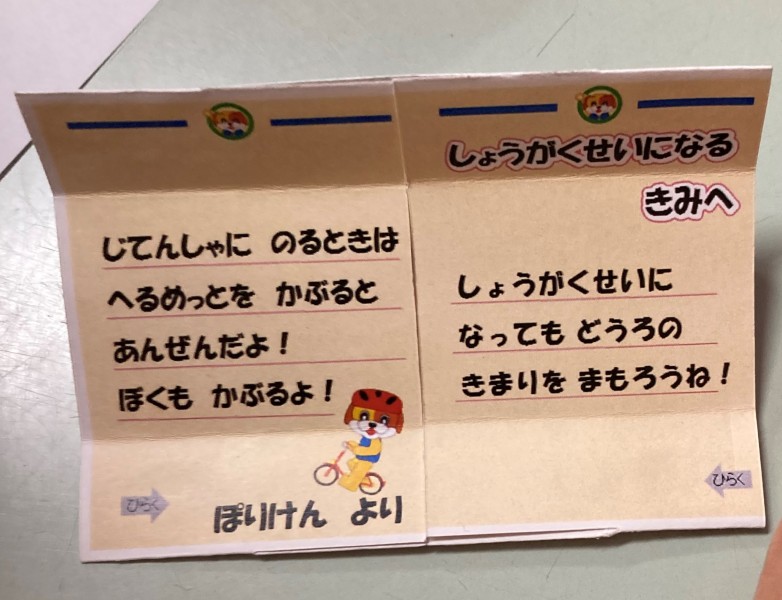 しょうがくせいになる
きみへ
しょうがくせいに
なっても どうろの
きまりを まもろうね！
ひらく
じてんしゃに のるときは
へるめっとを かぶると
あんぜんだよ！
ぼくも かぶるよ！
ひらく
ぽりけん より